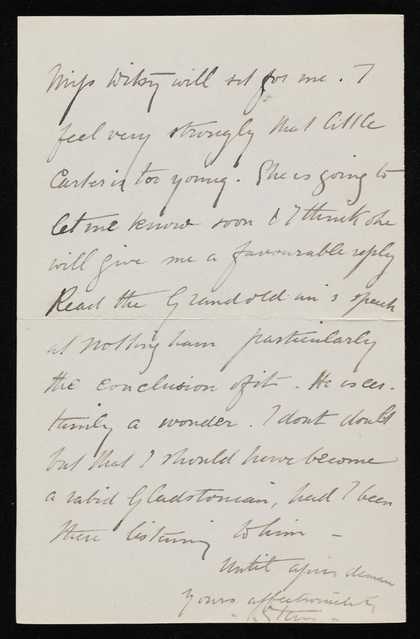 Miss will sit for me. I
feel very strongly that little
Carter is too young. She is going to
let me know soon & I think she
will give me a favourable reply
Read the Grand old m's speech
at Nottingham particularly
the conclusion of it. He is cer-
tainly a wonder. I dont doubt
but that I should have become
a rabid Gladstonian, had I been
there listening to him –
Until après demain
yours affectionately